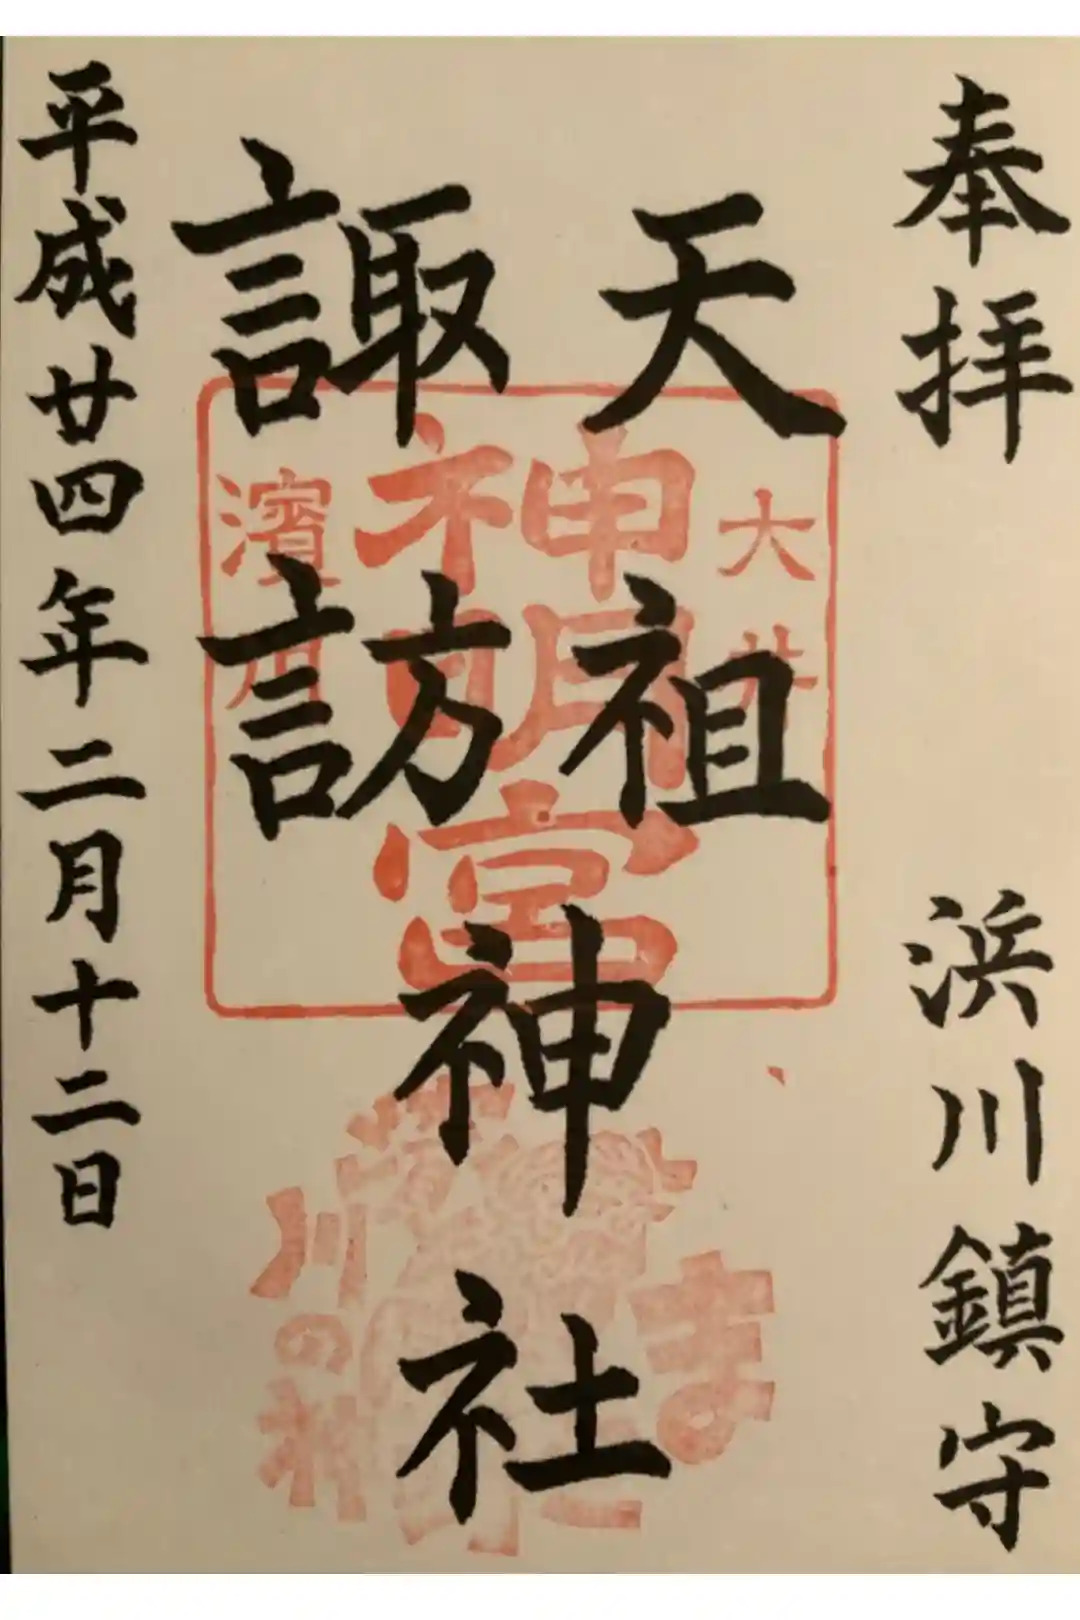 奉拝
浜川鎮守
天祖
諏訪
神社
平成廿四年二月十二日
大井
神明宮
濱川